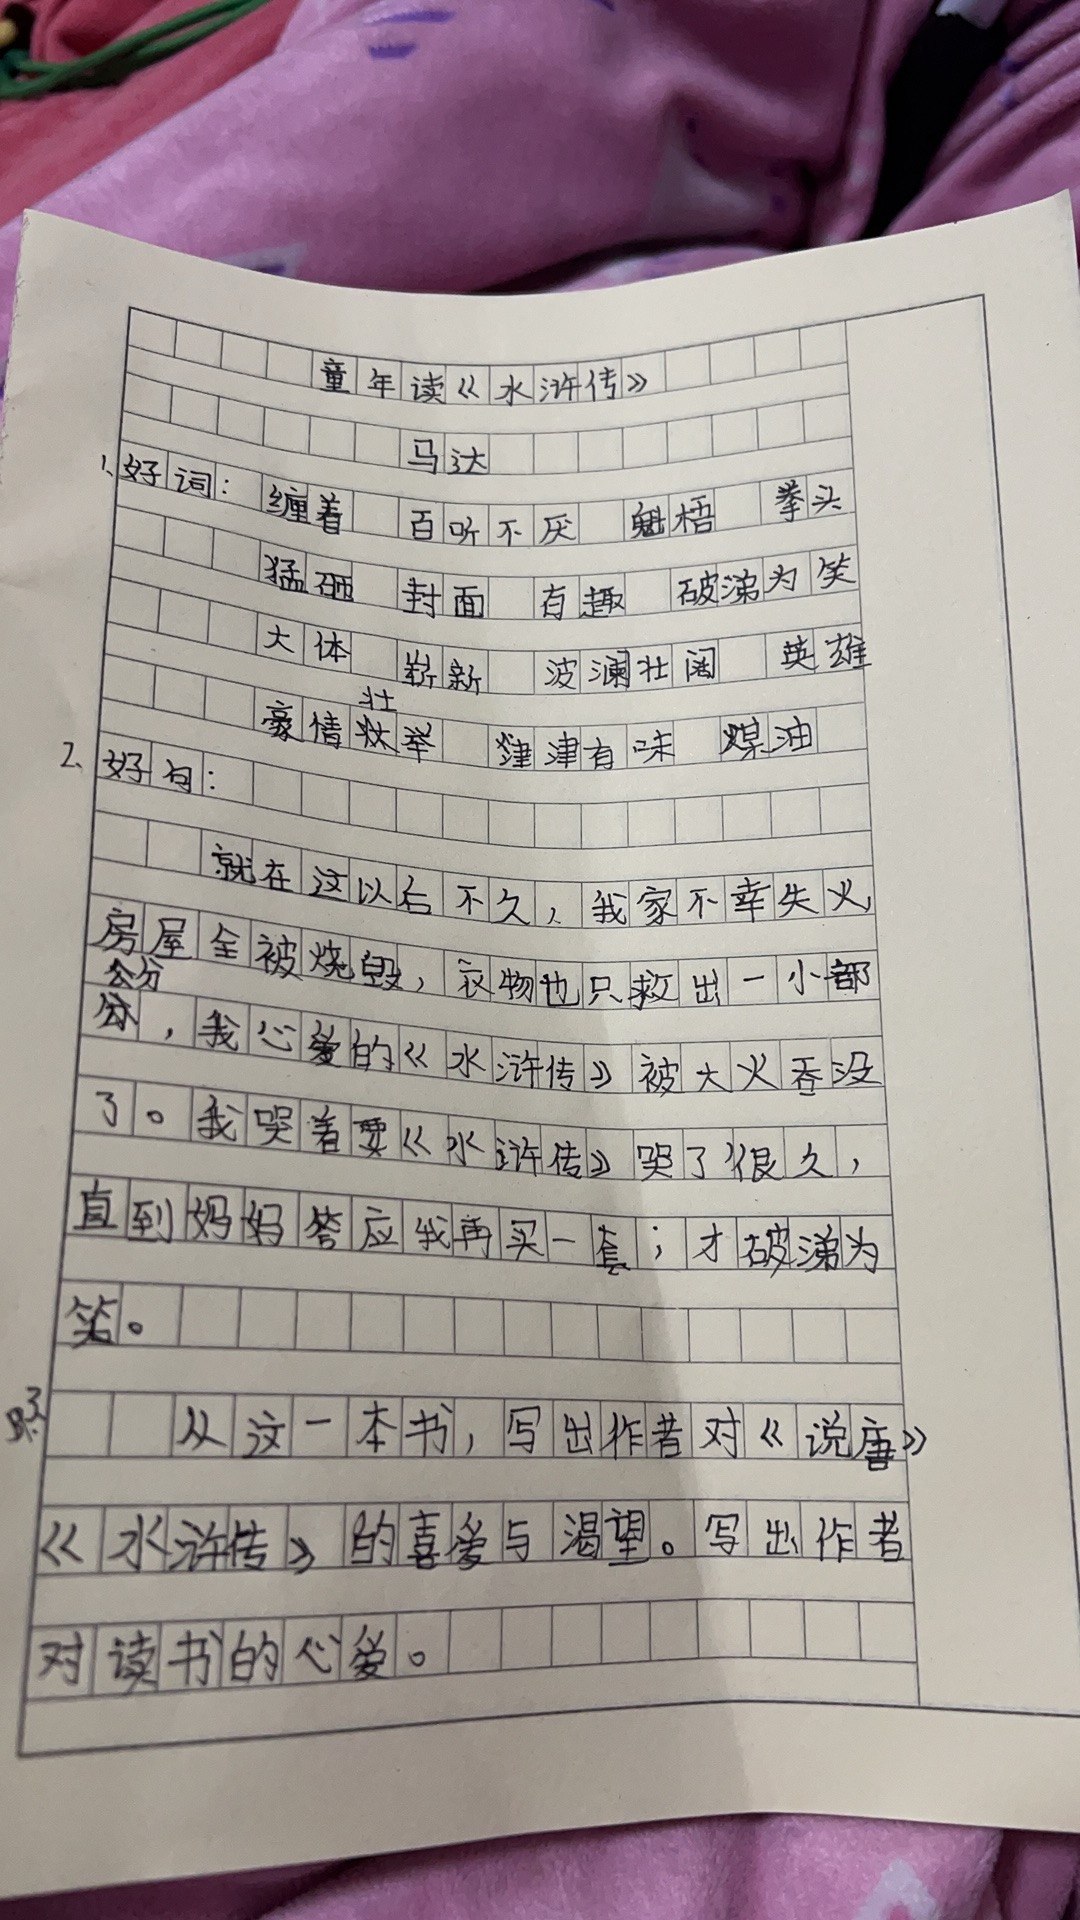 童年读《水浒传》
马达
1、好词：缠着 百听不厌 魁梧 拳头
猛砸 封面 有趣 破涕为笑
大体 崭新 波澜壮阔 英雄
壮
豪情 举 津津有味 煤油
2、好句：
就在这以后不久，我家不幸失火，
房屋全被烧毁，衣物也只救出一小部
分，我心爱的《水浒传》被大火吞没
了。我哭着要《水浒传》哭了很久，
直到妈妈答应我再买一套；才破涕为
笑。
3、 从这一本书，写出作者对《说唐》
《水浒传》的喜爱与渴望。写出作者
对读书的心爱。